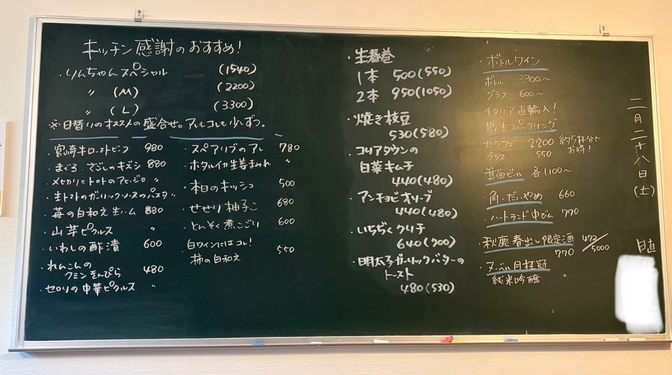 キッチン感謝のおすすめ!
・りんちゃんスペシャル (1540)
〃 (M) (2200)
〃 (L) (3300)
※日替りのオススメの盛合せ。アレもコレも少しずつ。
・宮崎牛ローストビーフ 980
・まぐろ、さごしのキズシ 880
・メヒカリとトマトのアヒージョ 〃
・生トマトのガーリックソースのパスタ 〃
・苺の白和え生ハム 880
・山芋ピクルス 〃
・いわしの酢漬 600
・れんこんの
クミンきんぴら 480
・セロリの中華ピクルス 〃
・スペアリブのアレ 780
・ホタルイカ生姜まみれ 〃
・本日のキッシュ 500
・せせり柚子こ 680
・とんそく煮こごり 600
白ワインにはコレ!
・柿の白和え 550
・生春巻
1本 500(550)
2本 950(1050)
・焼き枝豆
530(580)
・コリアタウンの
白菜キムチ
440(480)
・アンチョビオリーブ
440(480)
・いちぢくクリチ
640(700)
・明太子ガーリックバターの
トースト
480(530)
・ボトルワイン
ボトル 3300〜
グラス 600〜
・イタリア直輸入!
スパークリング
カラフェ 2200 約5杯分で
お得!
グラス 550
・箕面ビール 各1100〜
・角・だいやめ 660
・ハートランド中びん 770
・秋鹿春出し限定酒 473/5000
770
・ヌーベル月桂冠
純米吟醸 〃
二月二十八日(土)
日直